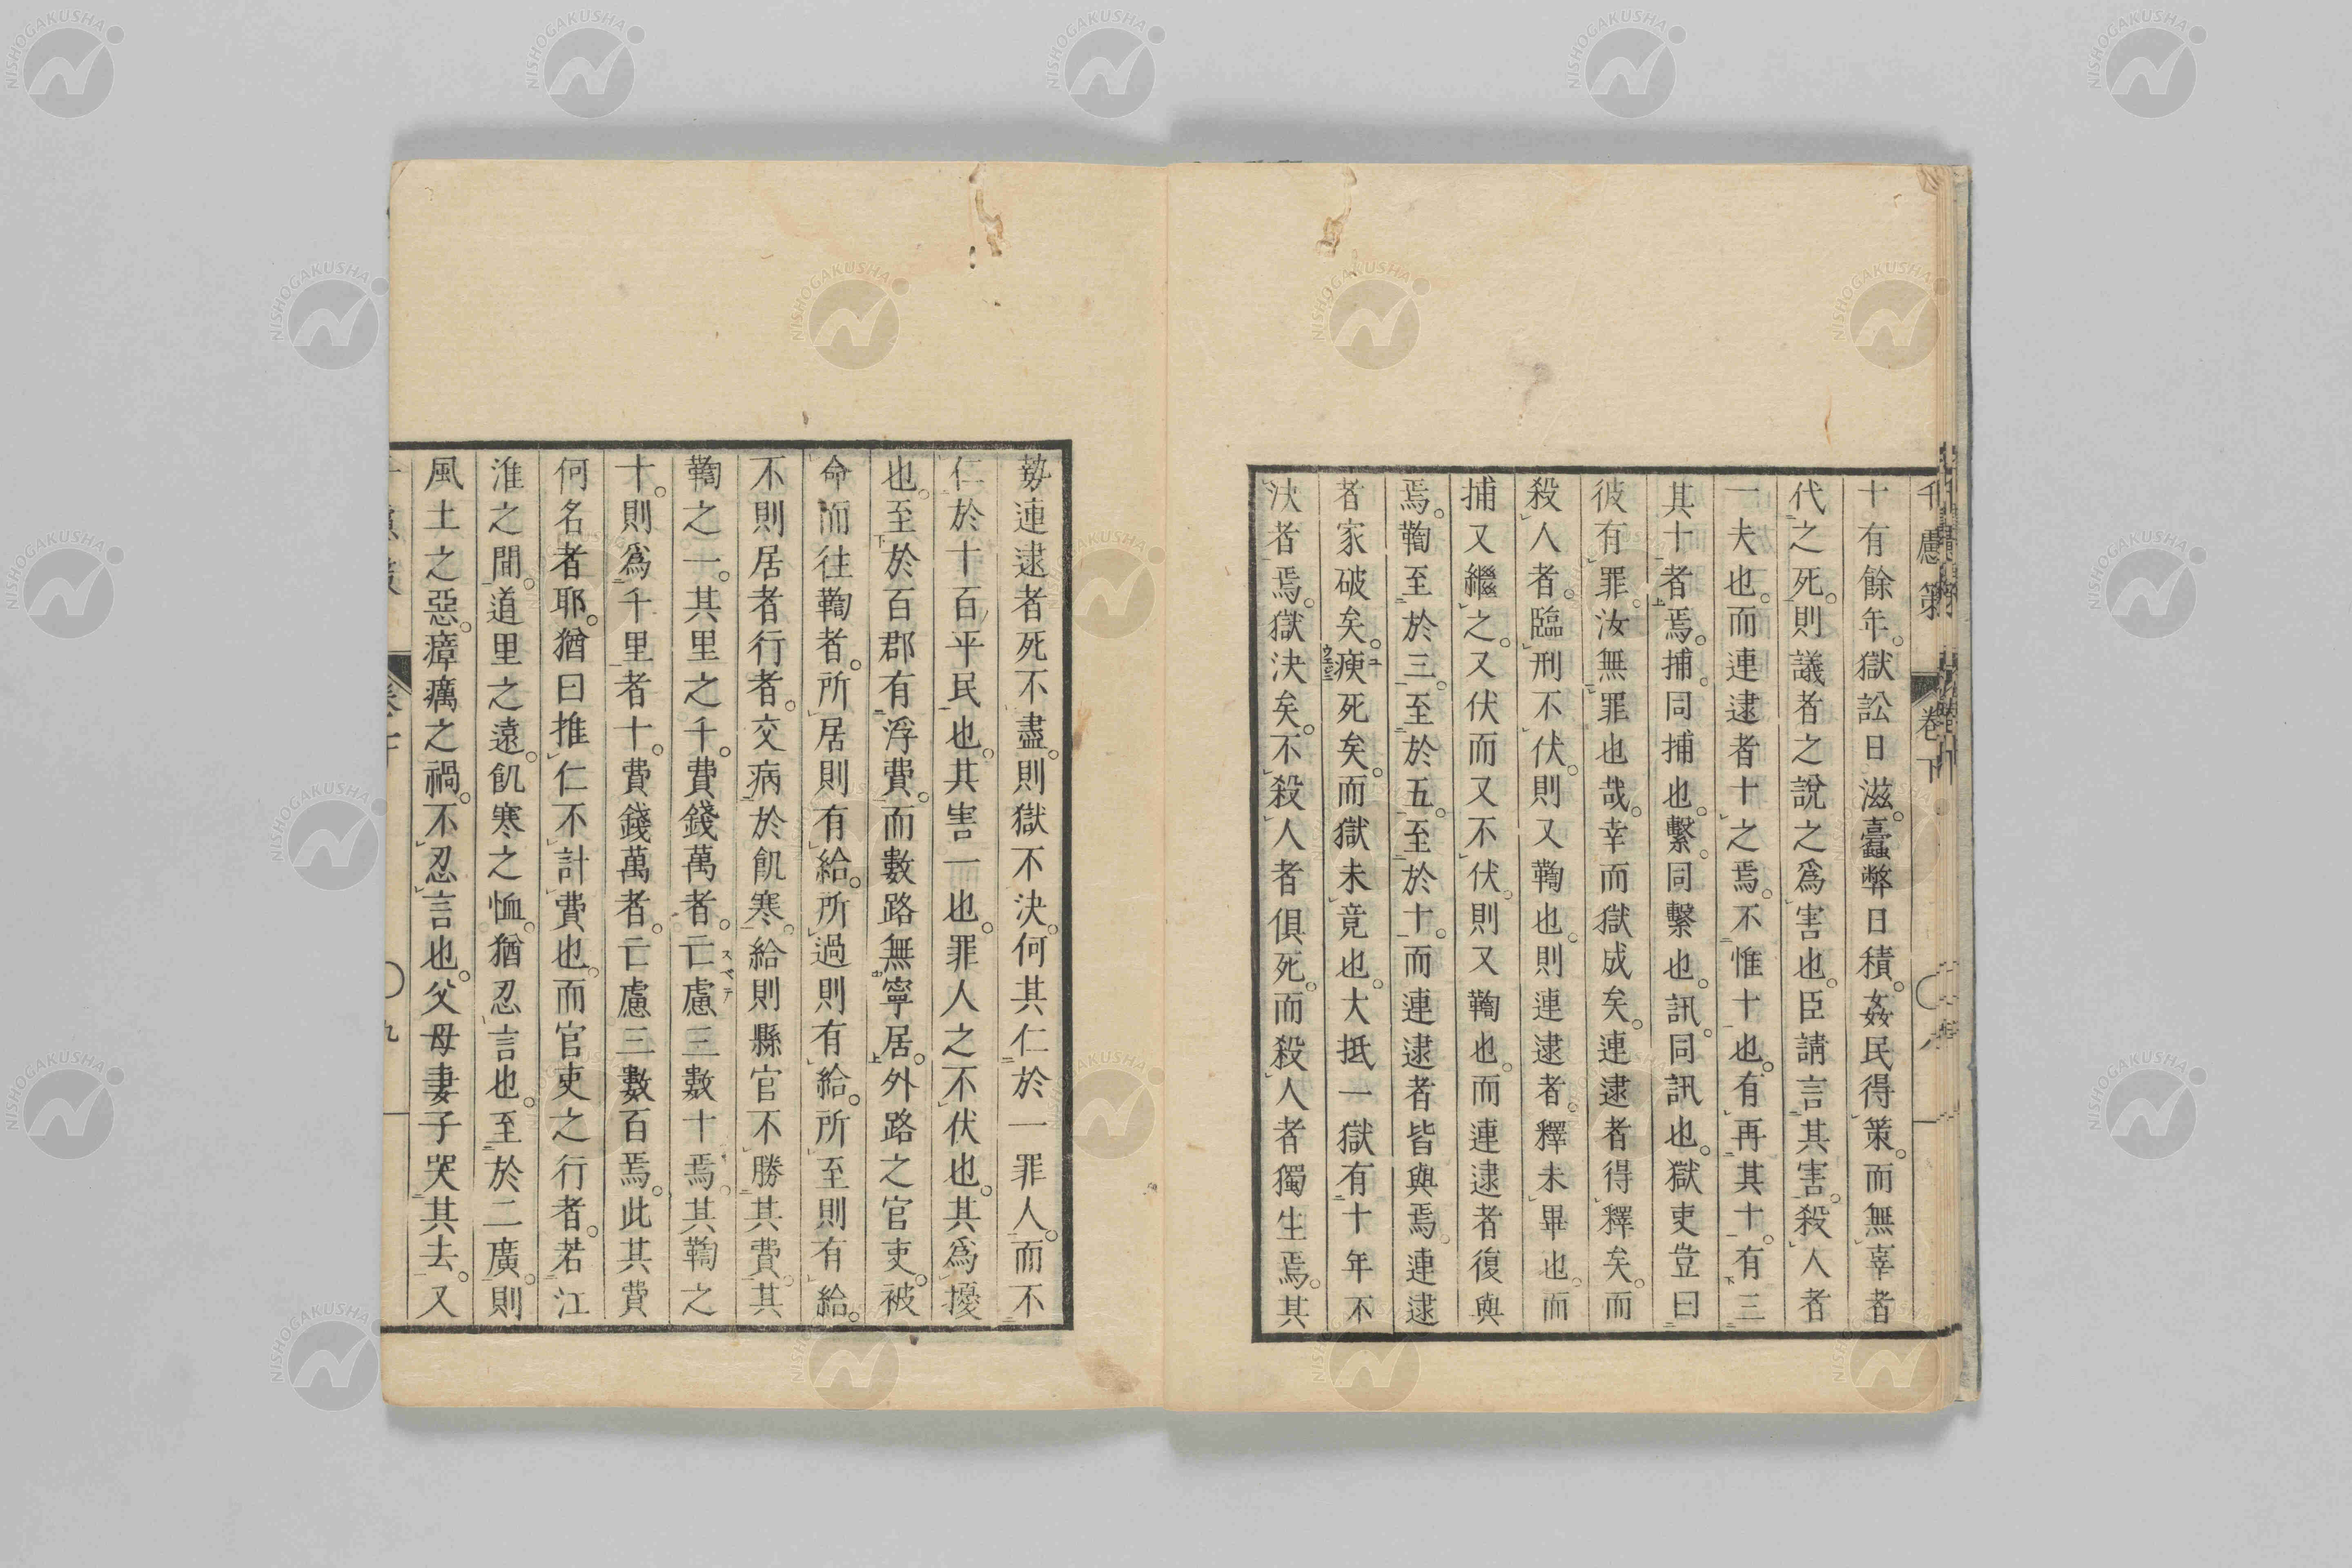 千慮策 卷下
十有餘年。獄訟日滋。蠹弊日積。姦民得策。而無辜者
代之死。則議者之說之爲害也。臣請言其害。殺人者
一夫也。而連逮者十之焉。不惟十也。有再其十。有三
其十者焉。捕。同捕也。繫。同繫也。訊。同訊也。獄吏豈曰
彼有罪。汝無罪也哉。幸而獄成矣。連逮者得釋矣。而
殺人者。臨刑不伏。則又鞫也。則連逮者。釋未畢也。而
捕又繼之。又伏而又不伏。則又鞫也。而連逮者復與
焉。鞫至於三。至於五。至於十。而連逮者皆與焉。連逮
者家破矣。瘐死矣。而獄未竟也。大抵一獄有十年不
決者焉。獄決矣。不殺人者俱死。而殺人者獨生焉。其
勢連逮者死不盡。則獄不決。何其仁於一罪人。而不
仁於十百平民也。其害一也。罪人之不伏也。其爲擾
也。至於百郡有浮費。而數路無寧居。外路之官吏。被
命而往鞫者。所居則有給。所過則有給。所至則有給。
不則居者行者。交病於飢寒。給則縣官不勝其費。其
鞫之一。其里之千。費錢萬者。亡慮三數十焉。其鞫之
十。則爲千里者十。費錢萬者。亡慮三數百焉。此其費
何名者耶。猶曰推仁不計費也。而官吏之行者。若江
淮之間。道里之遠。飢寒之恤。猶忍言也。至於二廣。則
風土之惡。瘴癘之禍。不忍言也。父母妻子哭其去。又
九